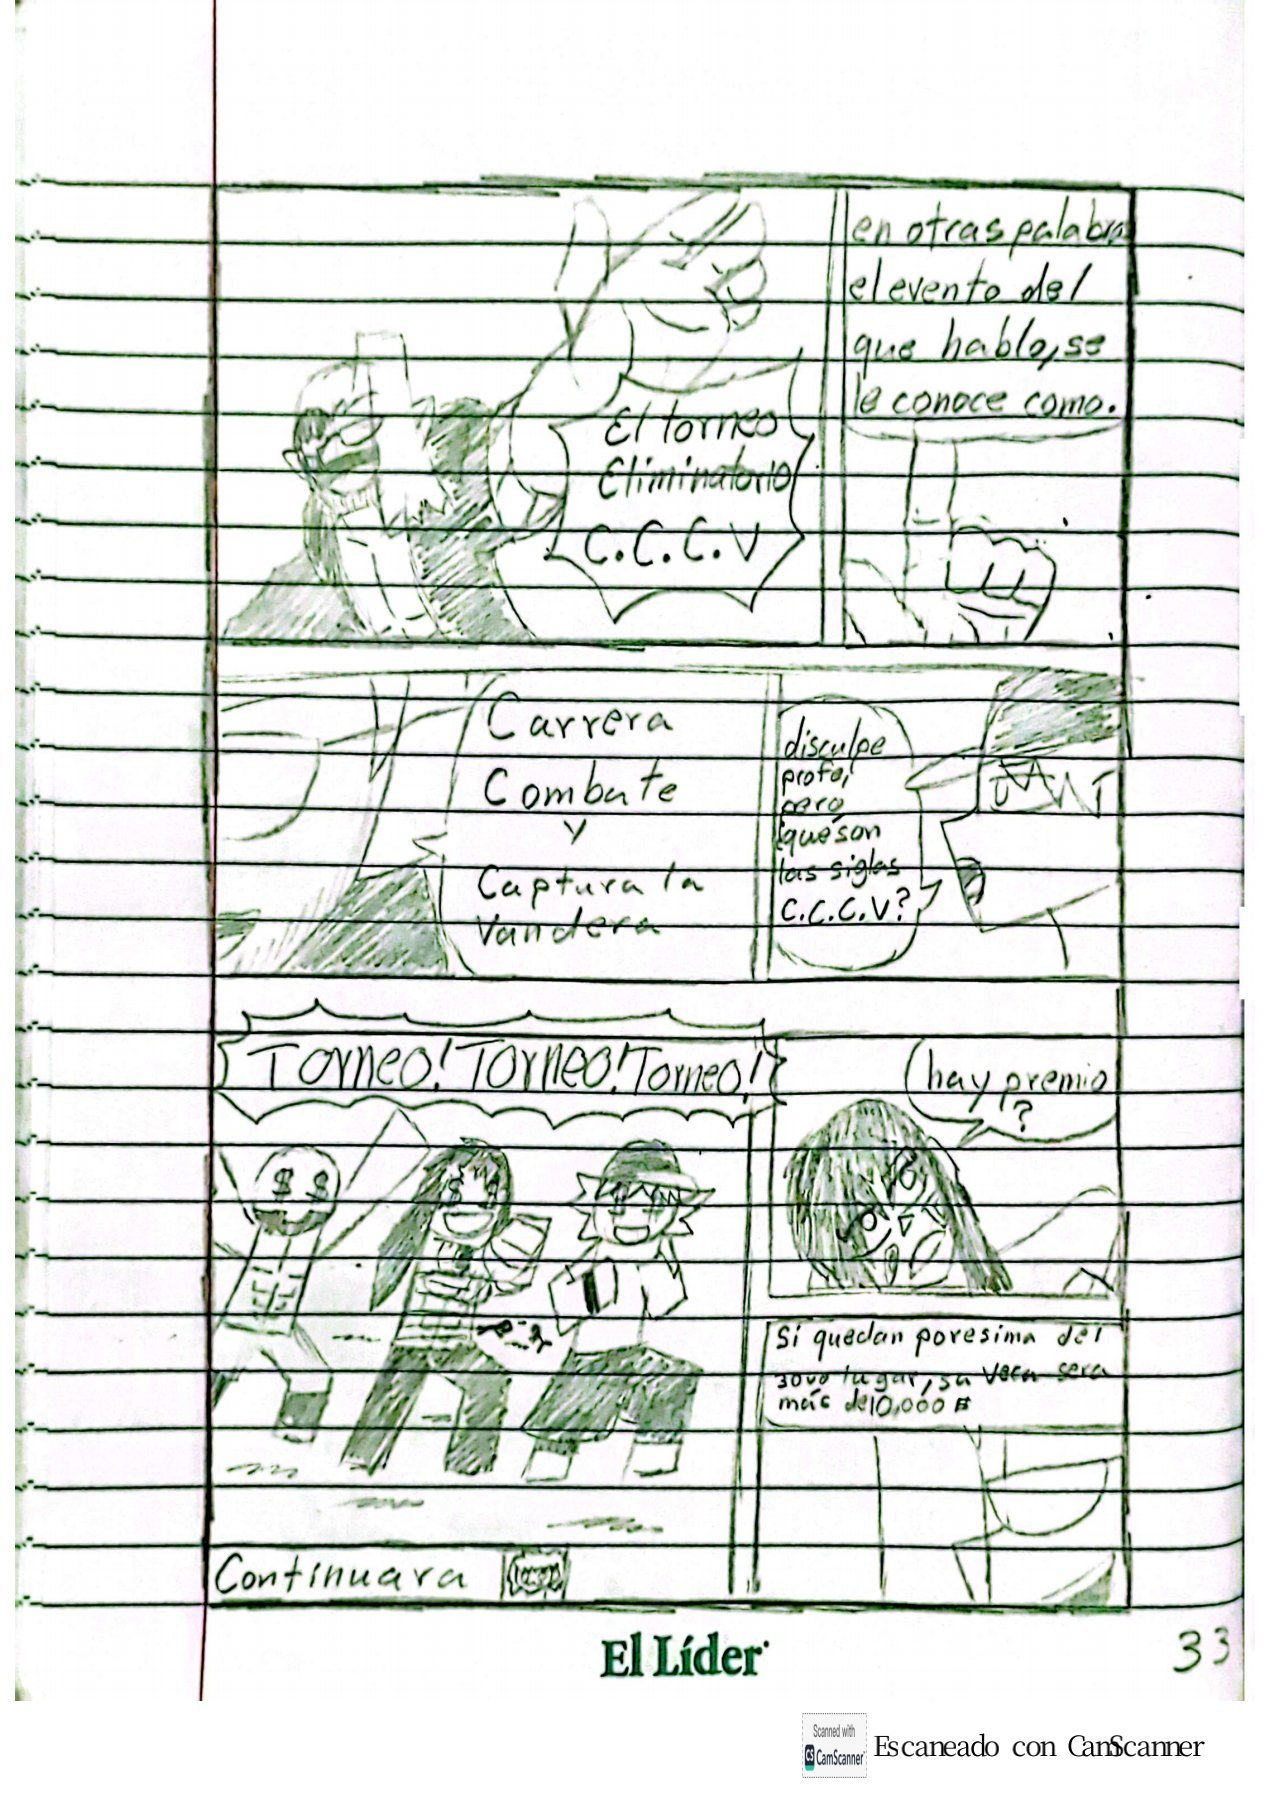 en otras palabra
el evento del
que hablo, se
le conoce como.
El torneo
Eliminatorio
C.C.C.V
disculpe
profe,
pero
que son
las siglas
C.C.C.V?
Carrera
Combate
y
Captura la
Vandera
hay premio
?
Torneo! Torneo! Torneo!
Si quedan poresima del
lugar, su vera sera
más de 10,000 B
Continuara
El Líder
33
Scanned with
CS CamScanner
Escaneado con CamScanner